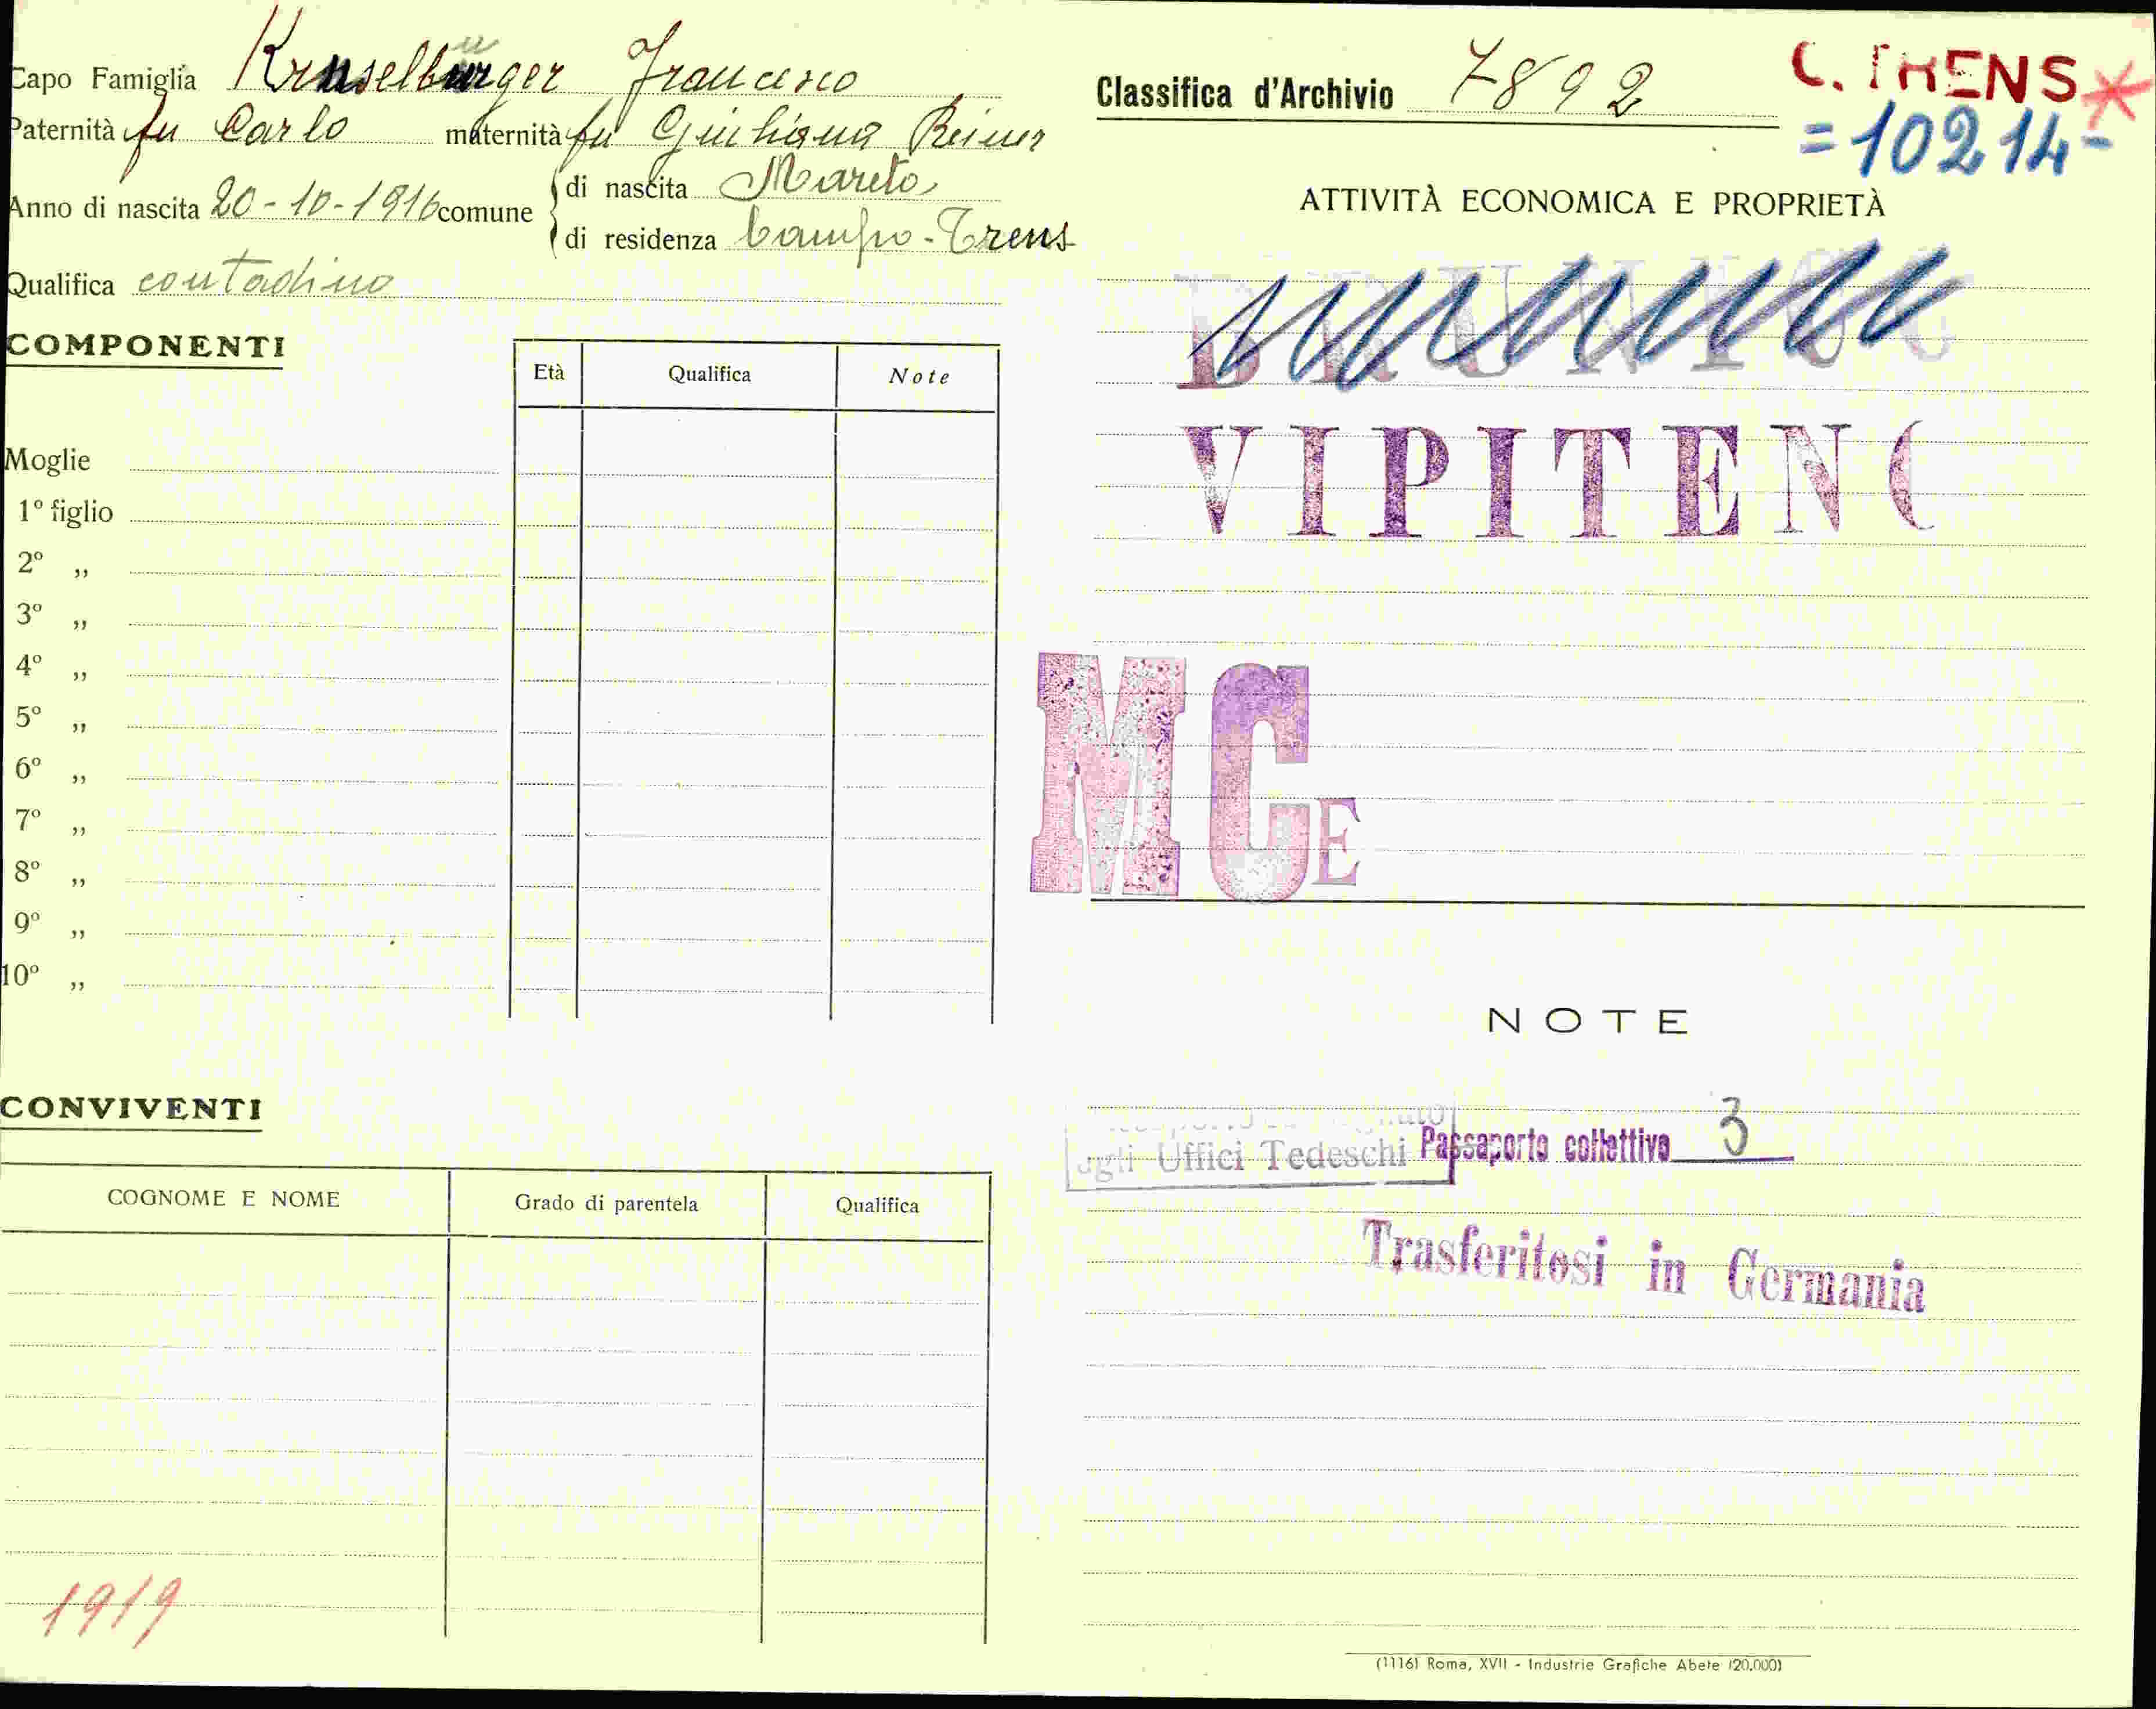 Capo Famiglia Francesco
Paternità fu Carlo maternità fu Giuliana
Anno di nascita 20-10-1916 comune di nascita Mareta
di residenza Campo-Trens
Qualifica contadino
COMPONENTI
Età Qualifica Note
Moglie
1º figlio
2º „
3º „
4º „
5º „
6º „
7º „
8º „
9º „
10º „
CONVIVENTI
COGNOME E NOME Grado di parentela Qualifica
1919
Classifica d'Archivio 7892
C. TRENS
=10214-
ATTIVITÀ ECONOMICA E PROPRIETÀ
VIPITENO
MCE
NOTE
agli Uffici Tedeschi Passaporto collettivo 3
Trasferitosi in Germania
(1116) Roma, XVII - Industrie Grafiche Abete (20.000)